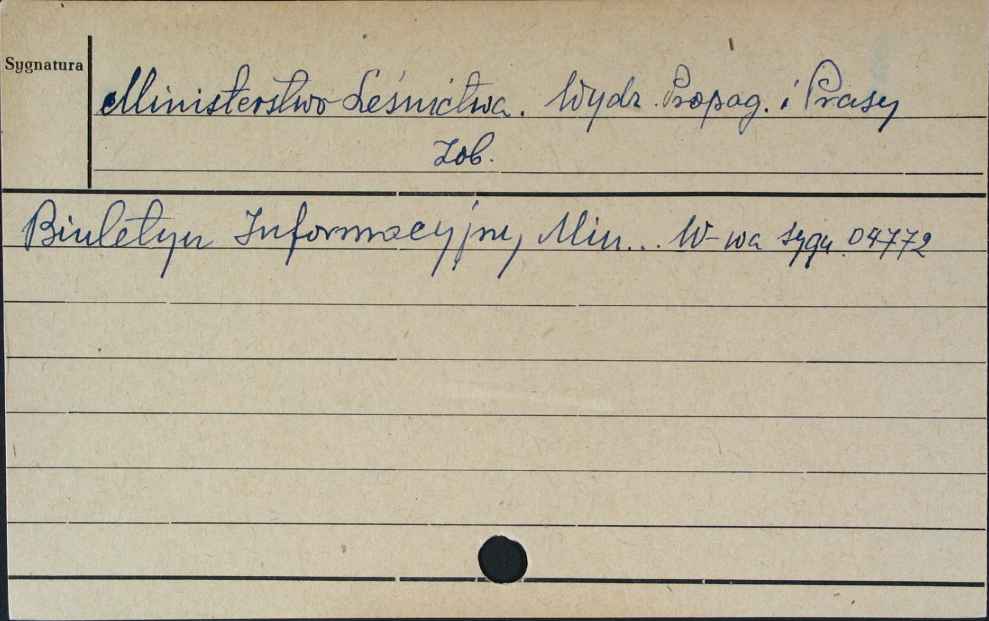 Sygnatura
Ministerstwo Leśnictwa. Wydz. Propag. i Prasy
Zob.
Biuletyn Informacyjny Min... W-wa sygn. 04772